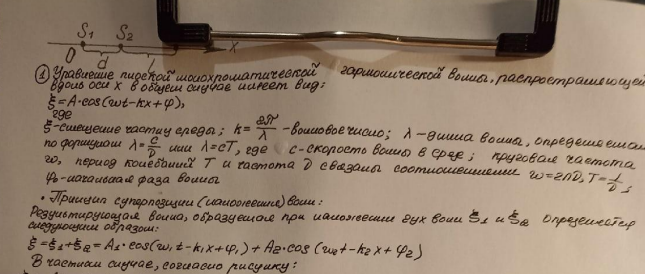 S₁ S₂
O d l x
① Уравнение плоской монохроматической гармонической волны, распространяющейся
вдоль оси x в общем случае имеет вид:
ξ = A·cos(ωt-kx+φ),
где
ξ-смещение частиц среды; k = 2π/λ -волновое число; λ-длина волны, определяемая
по формулам λ = c/ν или λ = cT, где c-скорость волны в среде; круговая частота
ω, период колебаний T и частота ν связаны соотношениями ω = 2πν, T = 1/ν,
φ₀-начальная фаза волны
• Принцип суперпозиции (наложение) волн:
Результирующая волна, образуемая при наложении двух волн ξ₁ и ξ₂ определяется
следующим образом:
ξ = ξ₁+ξ₂ = A₁·cos(ω₁t-k₁x+φ₁) + A₂·cos(ω₂t-k₂x+φ₂)
В частном случае, согласно рисунку: